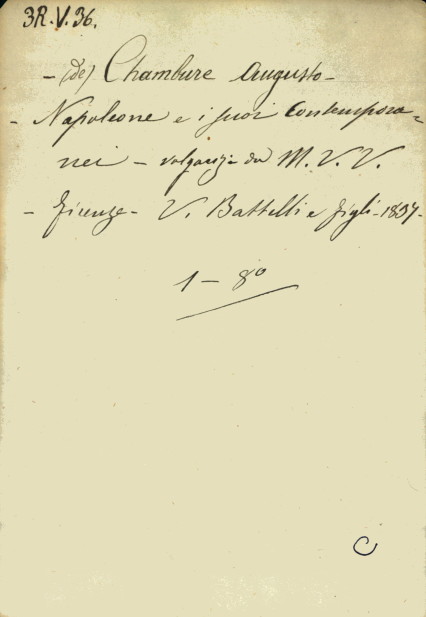 3R.V.36.
- (de) Chambure Augusto -
- Napoleone e i suoi Contempora=
nei - volgarizz. da M. V. V.
- Firenze - V. Battelli e figli - 1837 -
1 - 8º
C